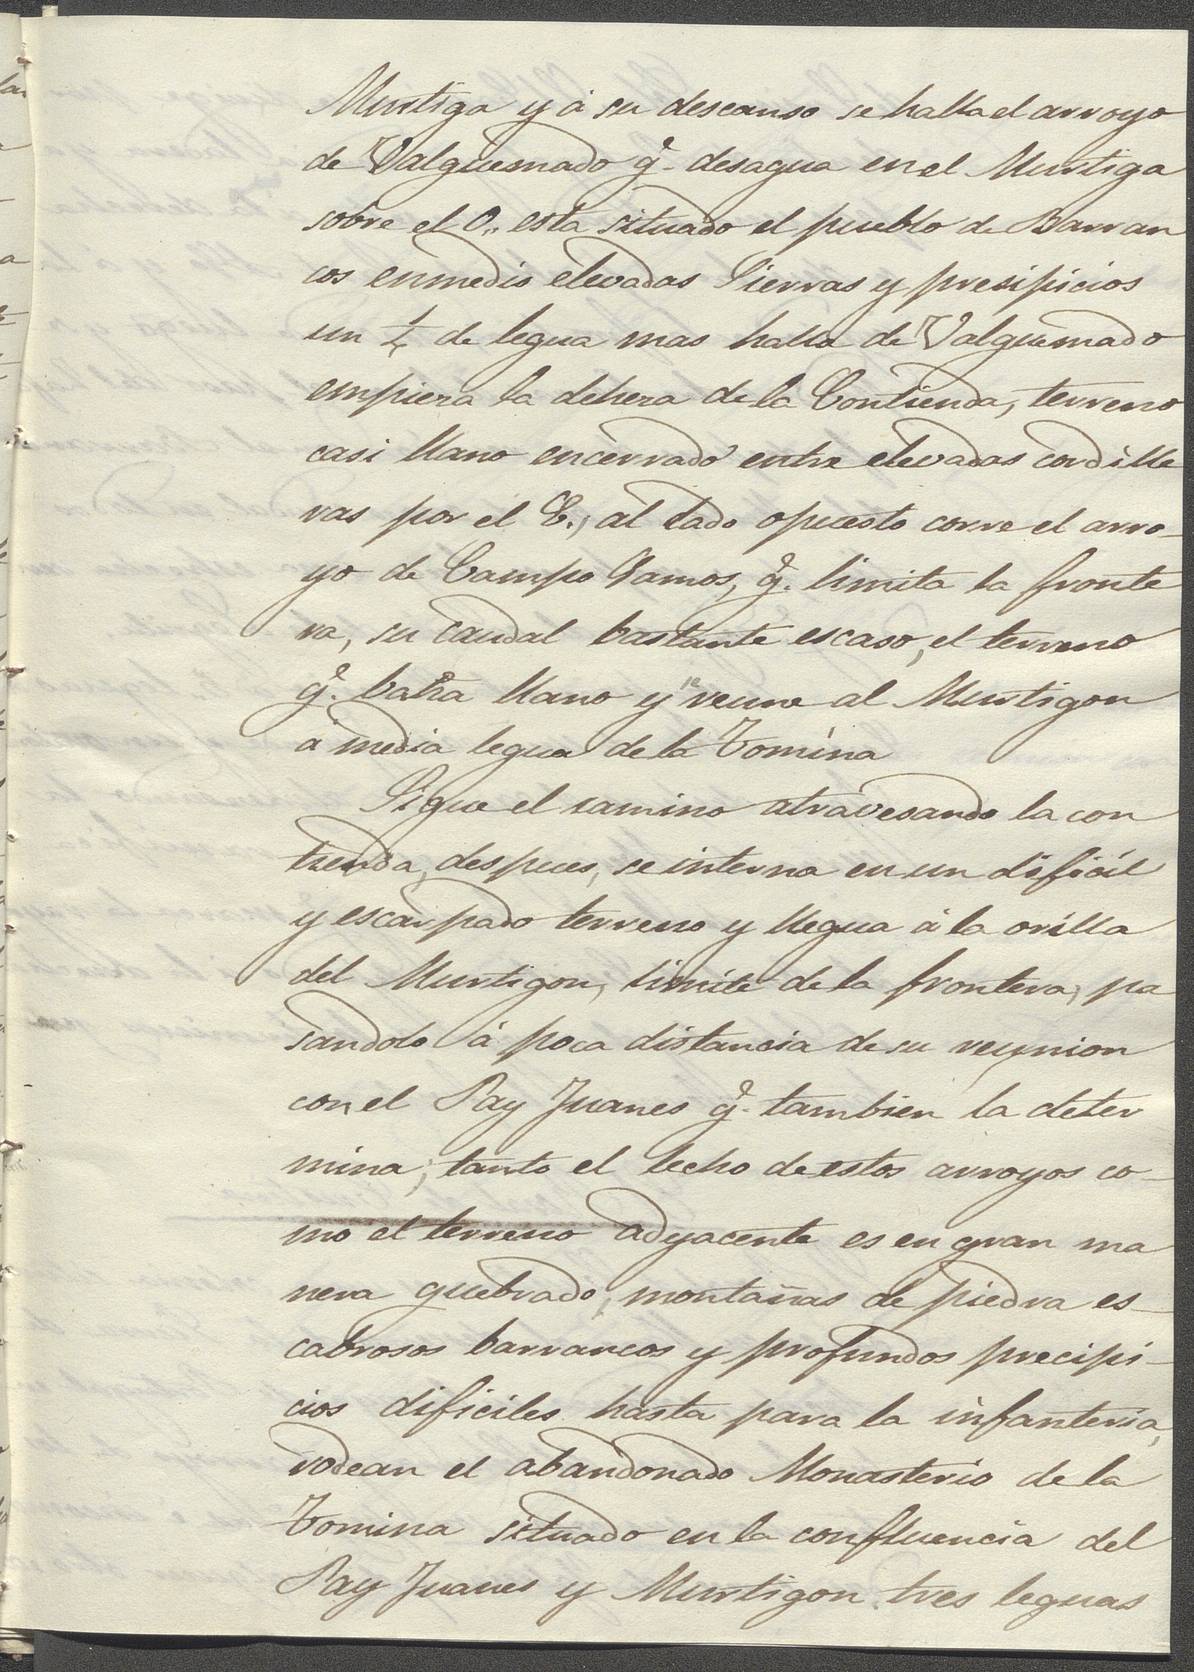 Murtiga y á su descanso se halla el arroyo
de Valquemado q.e desagua en el Murtiga
sobre el O., esta situado el pueblo de Barran
cos enmedio elevadas Sierras y presipicios
un ¼ de legua mas halla de Valquemado
empieza la deheza de la Contienda, terreno
casi llano encerrado entre elevadas cordille
ras por el E., al lado opuesto corre el arro-
yo de Campo Gamos, q.e limita la fronte
ra, su caudal bastante escaso, el terreno
q.e baña llano y se reune al Murtigon
á media legua de la Tomina
Sigue el camino atravesando la con
tienda, despues, se interna en un dificil
y escarpado terreno y llegua á la orilla
del Murtigon, limite de la frontera, pa
sandolo á poca distancia de su reynion
con el Pay Juanes q.e tambien la deter
mina; tanto el lecho de estos arroyos co-
mo el terreno adyacente es en gran ma
nera quebrado, montañas de piedra es-
cabrosos barrancos y profundos precipi-
cios dificiles hasta para la infanteria,
rodean el abandonado Monasterio de la
Tomina situado en la confluencia del
Pay Juanes y Murtigon tres leguas